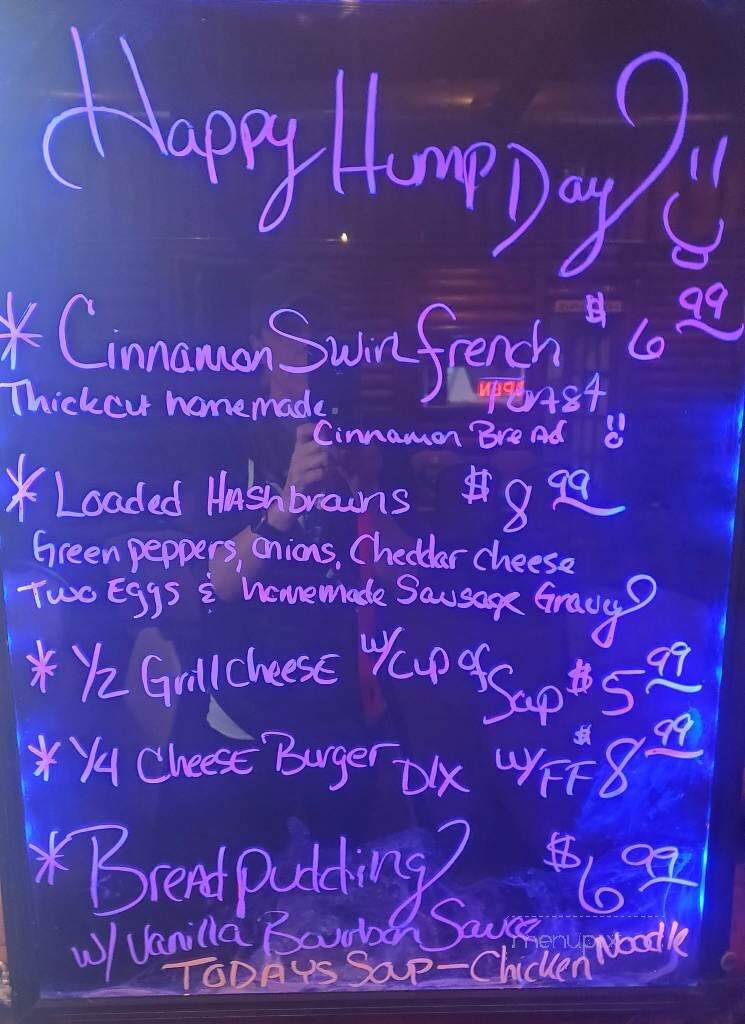 Happy Hump Day
* Cinnamon Swirl french $6 99
Toast
Thickcut homemade
Cinnamon Bread
* Loaded Hashbrowns $8 99
Green peppers, onions, Cheddar cheese
Two Eggs & homemade Sausage Gravy
* 1/2 Grill Cheese w/ cup of Soup $5 99
* 1/4 Cheese Burger Dlx w/ FF $8 99
* Bread pudding $6 99
w/ Vanilla Bourbon Sauce
menupix
TODAYS Soup - Chicken Noodle
OPEN